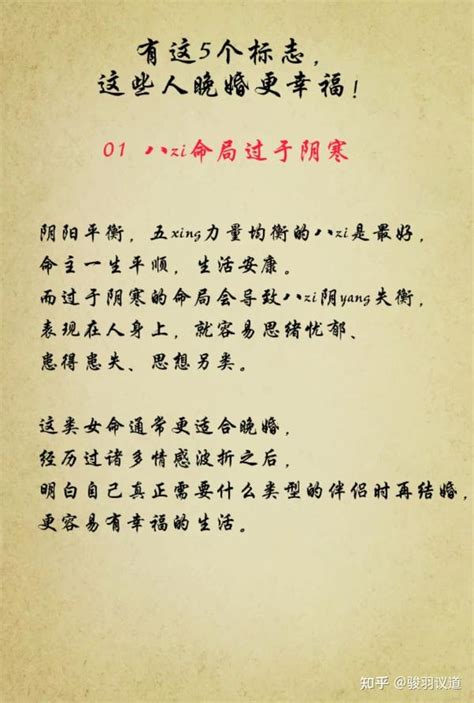 有这5个标志，
这些人晚婚更幸福！
01 八zi命局过于阴寒
阴阳平衡，五xing力量均衡的八zi是最好，
命主一生平顺，生活安康。
而过于阴寒的命局会导致八zi阴yang失衡，
表现在人身上，就容易思绪忧郁、
患得患失、思想另类。
这类女命通常更适合晚婚，
经历过诸多情感波折之后，
明白自己真正需要什么类型的伴侣时再结婚，
更容易有幸福的生活。
知乎 @骏羽议道